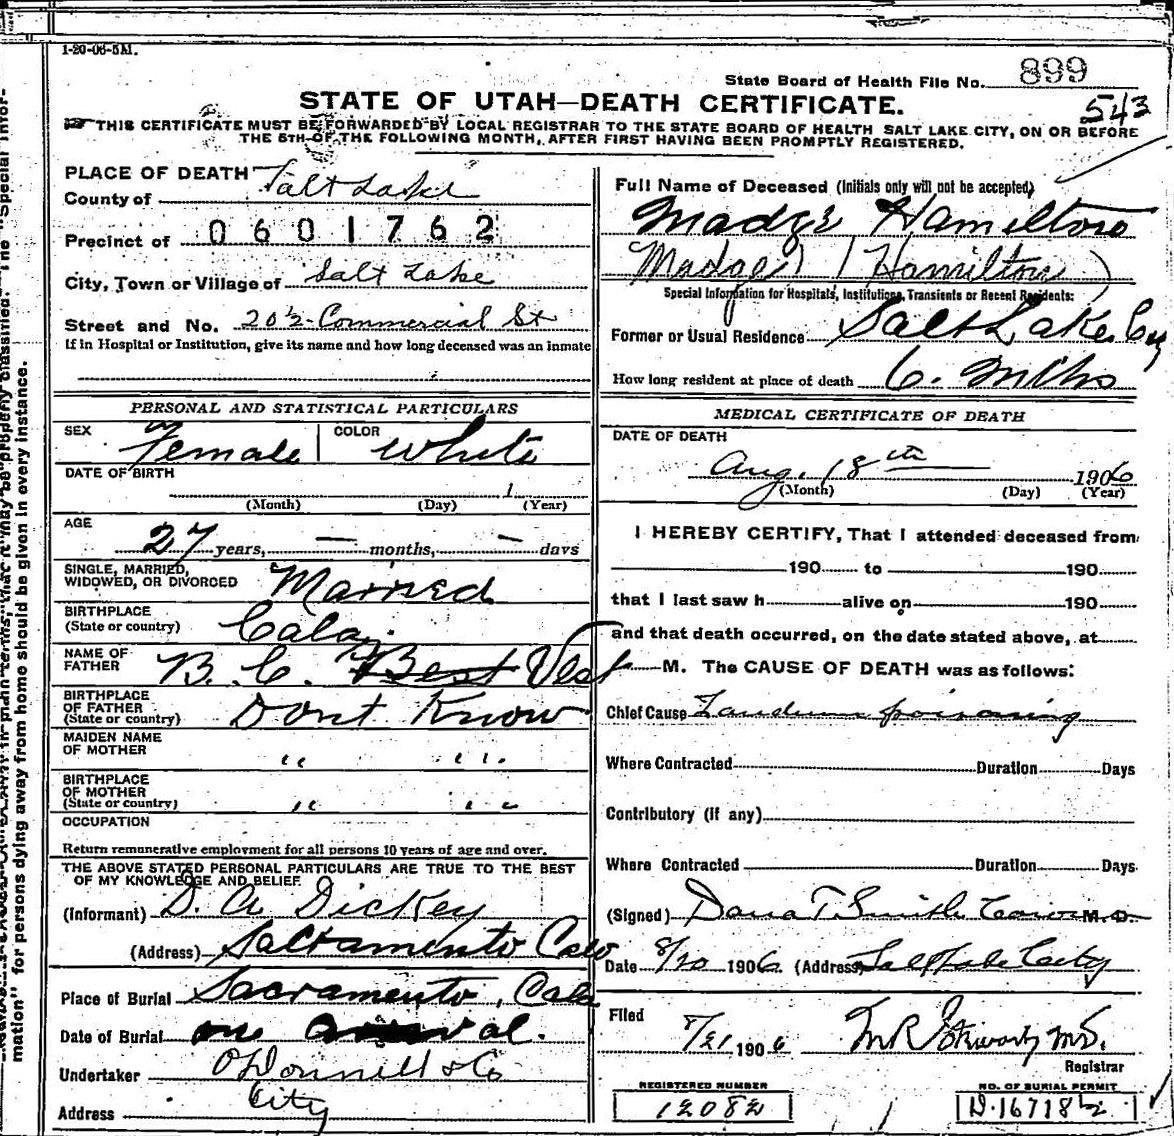 1-20-06-5M.
State Board of Health File No. 899
STATE OF UTAH—DEATH CERTIFICATE.
543
THIS CERTIFICATE MUST BE FORWARDED BY LOCAL REGISTRAR TO THE STATE BOARD OF HEALTH SALT LAKE CITY, ON OR BEFORE
THE 5TH OF THE FOLLOWING MONTH, AFTER FIRST HAVING BEEN PROMPTLY REGISTERED.
PLACE OF DEATH
County of Salt Lake
Precinct of 0601762
City, Town or Village of Salt Lake
Street and No. 20½ Commercial St
If in Hospital or Institution, give its name and how long deceased was an inmate
PERSONAL AND STATISTICAL PARTICULARS
SEX Female COLOR White
DATE OF BIRTH
1
(Month) (Day) (Year)
AGE
27 years, — months, — days
SINGLE, MARRIED,
WIDOWED, OR DIVORCED Married
BIRTHPLACE
(State or country)
NAME OF
FATHER B. C. Best West
BIRTHPLACE
OF FATHER
(State or country) Dont Know
MAIDEN NAME
OF MOTHER " "
BIRTHPLACE
OF MOTHER
(State or country) " "
OCCUPATION
Return remunerative employment for all persons 10 years of age and over.
THE ABOVE STATED PERSONAL PARTICULARS ARE TRUE TO THE BEST
OF MY KNOWLEDGE AND BELIEF.
(Informant) D. A. Dickey
(Address) Sacramento
Place of Burial Sacramento, Cala
Date of Burial on
Undertaker O'Donnell & Co
Address City
Full Name of Deceased (Initials only will not be accepted)
Madge Hamilton
Madge (Hamilton)
Special Information for Hospitals, Institutions, Transients or Recent Residents:
Former or Usual Residence Salt Lake City
How long resident at place of death 6. Mths
MEDICAL CERTIFICATE OF DEATH
DATE OF DEATH
Aug. 18th 1906
(Month) (Day) (Year)
I HEREBY CERTIFY, That I attended deceased from
190 to 190
that I last saw h alive on 190
and that death occurred, on the date stated above, at
M. The CAUSE OF DEATH was as follows:
Chief Cause Laudnum poisoning
Where Contracted Duration Days
Contributory (if any)
Where Contracted Duration Days
(Signed) Dana T Smith M.D.
Date 8/20 1906 (Address) Salt Lake City
Filed
8/21 1906
Registrar
REGISTERED NUMBER
12082
NO. OF BURIAL PERMIT
D.16718½
mation" for persons dying away from home should be given in every instance.